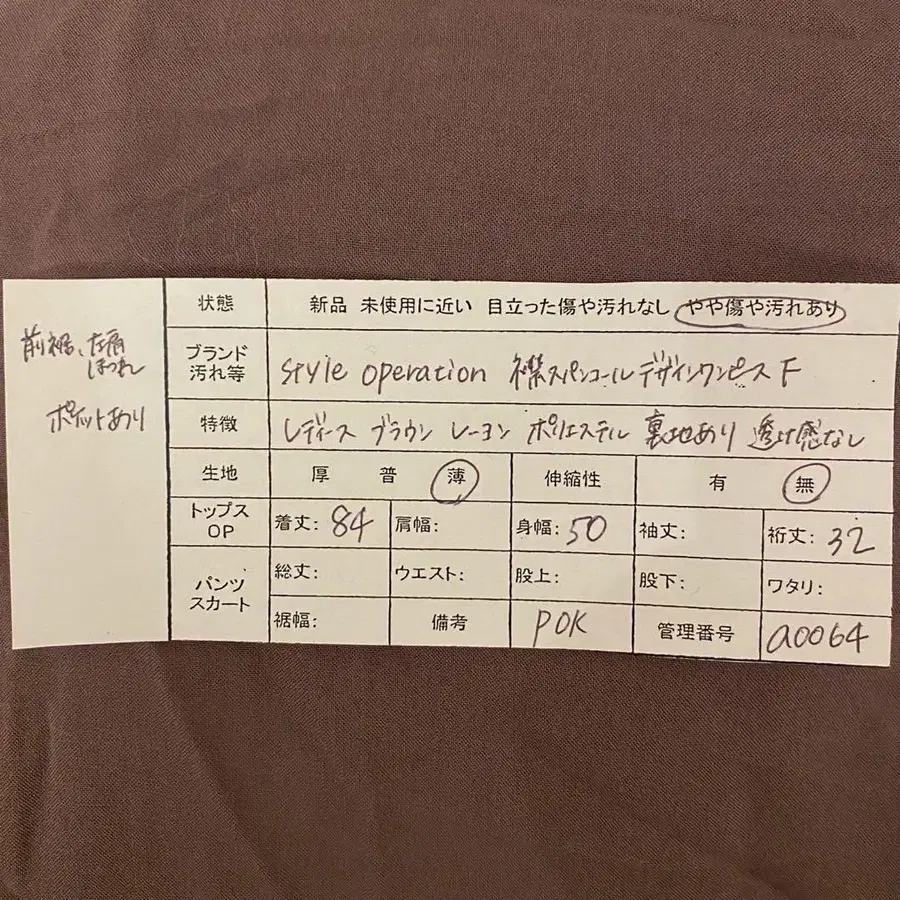 前裾、左肩
ほつれ
ポケットあり
状態 新品 未使用に近い 目立った傷や汚れなし やや傷や汚れあり
ブランド
汚れ等
style operation 襟スパンコールデザインワンピース F
特徴 レディース ブラウン レーヨン ポリエステル 裏地あり 透け感なし
生地 厚 普 薄 伸縮性 有 無
トップス
OP
着丈: 84 肩幅: 身幅: 50 袖丈: 裄丈: 32
パンツ
スカート
総丈: ウエスト: 股上: 股下: ワタリ:
裾幅: 備考 POK 管理番号 a0064